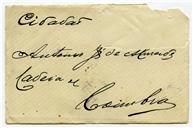 Cidadão
Antonio Jé de Almeida
Cadeia de
Coimbra